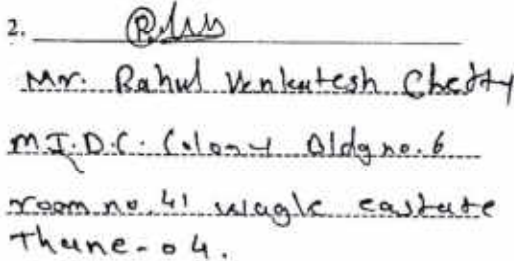 2.
Mr. Rahul Venkatesh Chetty
M.I.D.C. Colony Bldg no. 6
room no. 41 wagle eastate
Thane-04.